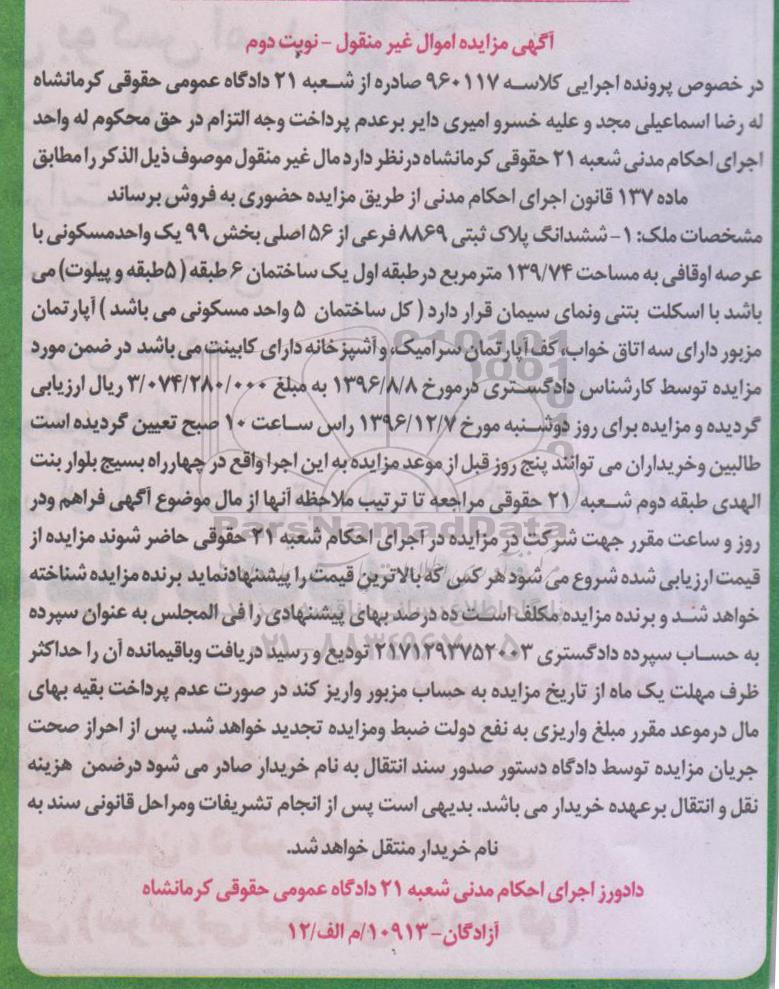 آگهی مزایده اموال غیر منقول - نوبت دوم
در خصوص پرونده اجرایی کلاسه ۹۶۰۱۱۷ صادره از شعبه ۲۱ دادگاه عمومی حقوقی کرمانشاه
له رضا اسماعیلی مجد و علیه خسرو امیری دایر برعدم پرداخت وجه التزام در حق محکوم له واحد
اجرای احکام مدنی شعبه ۲۱ حقوقی کرمانشاه درنظر دارد مال غیر منقول موصوف ذیل الذکر را مطابق
ماده ۱۳۷ قانون اجرای احکام مدنی از طریق مزایده حضوری به فروش برساند
مشخصات ملک: ۱- ششدانگ پلاک ثبتی ۸۸۶۹ فرعی از ۵۶ اصلی بخش ۹۹ یک واحدمسکونی با
عرصه اوقافی به مساحت ۱۳۹/۷۴ مترمربع درطبقه اول یک ساختمان ۶ طبقه (۵طبقه و پیلوت) می
باشد با اسکلت بتنی ونمای سیمان قرار دارد ( کل ساختمان ۵ واحد مسکونی می باشد ) آپارتمان
مزبور دارای سه اتاق خواب، گف آپارتمان سرامیک، و آشپزخانه دارای کابینت می باشد در ضمن مورد
مزایده توسط کارشناس دادگستری درمورخ ۱۳۹۶/۸/۸ به مبلغ ۳/۰۷۴/۲۸۰/۰۰۰ ریال ارزیابی
گردیده و مزایده برای روز دوشنبه مورخ ۱۳۹۶/۱۲/۷ راس ساعت ۱۰ صبح تعیین گردیده است
طالبین وخریداران می توانند پنج روز قبل از موعد مزایده به این اجرا واقع در چهارراه بسیج بلوار بنت
الهدی طبقه دوم شعبه ۲۱ حقوقی مراجعه تا ترتیب ملاحظه آنها از مال موضوع آگهی فراهم ودر
روز و ساعت مقرر جهت شرکت در مزایده در اجرای احکام شعبه ۲۱ حقوقی حاضر شوند مزایده از
قیمت ارزیابی شده شروع می شود هر کس که بالاترین قیمت را پیشنهادنماید برنده مزایده شناخته
خواهد شد و برنده مزایده مکلف است ده درصد بهای پیشنهادی را فی المجلس به عنوان سپرده
به حساب سپرده دادگستری ۲۱۷۱۲۹۳۷۵۲۰۰۳ تودیع و رسید دریافت وباقیمانده آن را حداکثر
ظرف مهلت یک ماه از تاریخ مزایده به حساب مزبور واریز کند در صورت عدم پرداخت بقیه بهای
مال درموعد مقرر مبلغ واریزی به نفع دولت ضبط ومزایده تجدید خواهد شد. پس از احراز صحت
جریان مزایده توسط دادگاه دستور صدور سند انتقال به نام خریدار صادر می شود درضمن هزینه
نقل و انتقال برعهده خریدار می باشد. بدیهی است پس از انجام تشریفات ومراحل قانونی سند به
نام خریدار منتقل خواهد شد.
دادورز اجرای احکام مدنی شعبه ۲۱ دادگاه عمومی حقوقی کرمانشاه
آزادگان - ۱۰۹۱۳/م الف/۱۲
ParsNamadData